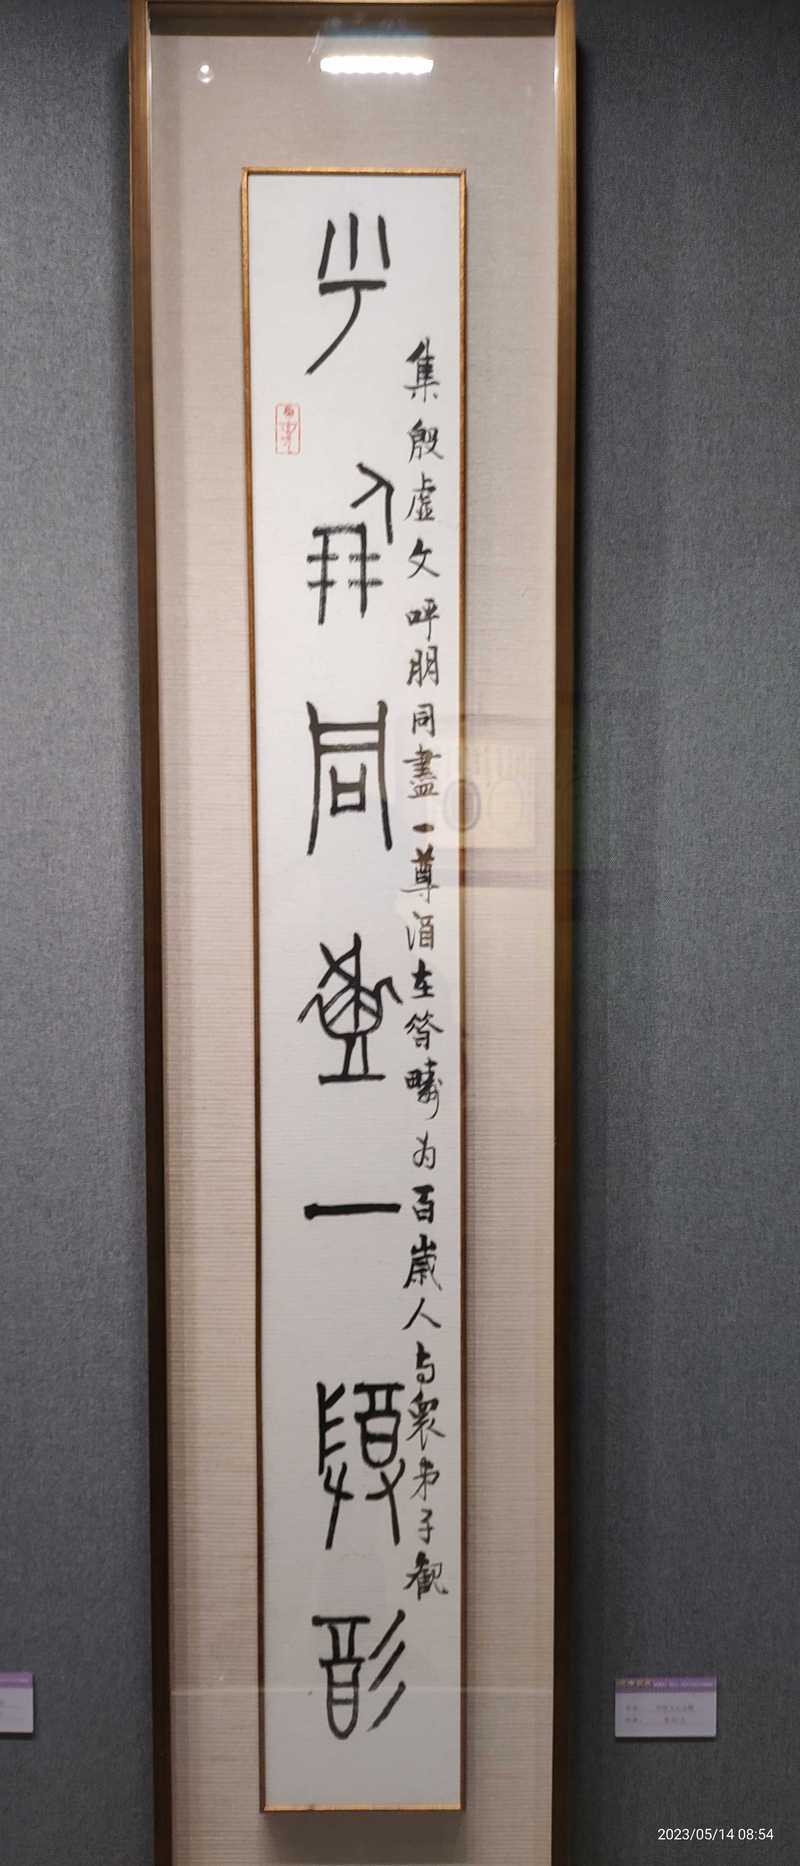 集殷虚文呼朋同盡一尊酒在答疇为百歲人与衆弟子觀
乎朋同盡一尊酒
2023/05/14 08:54